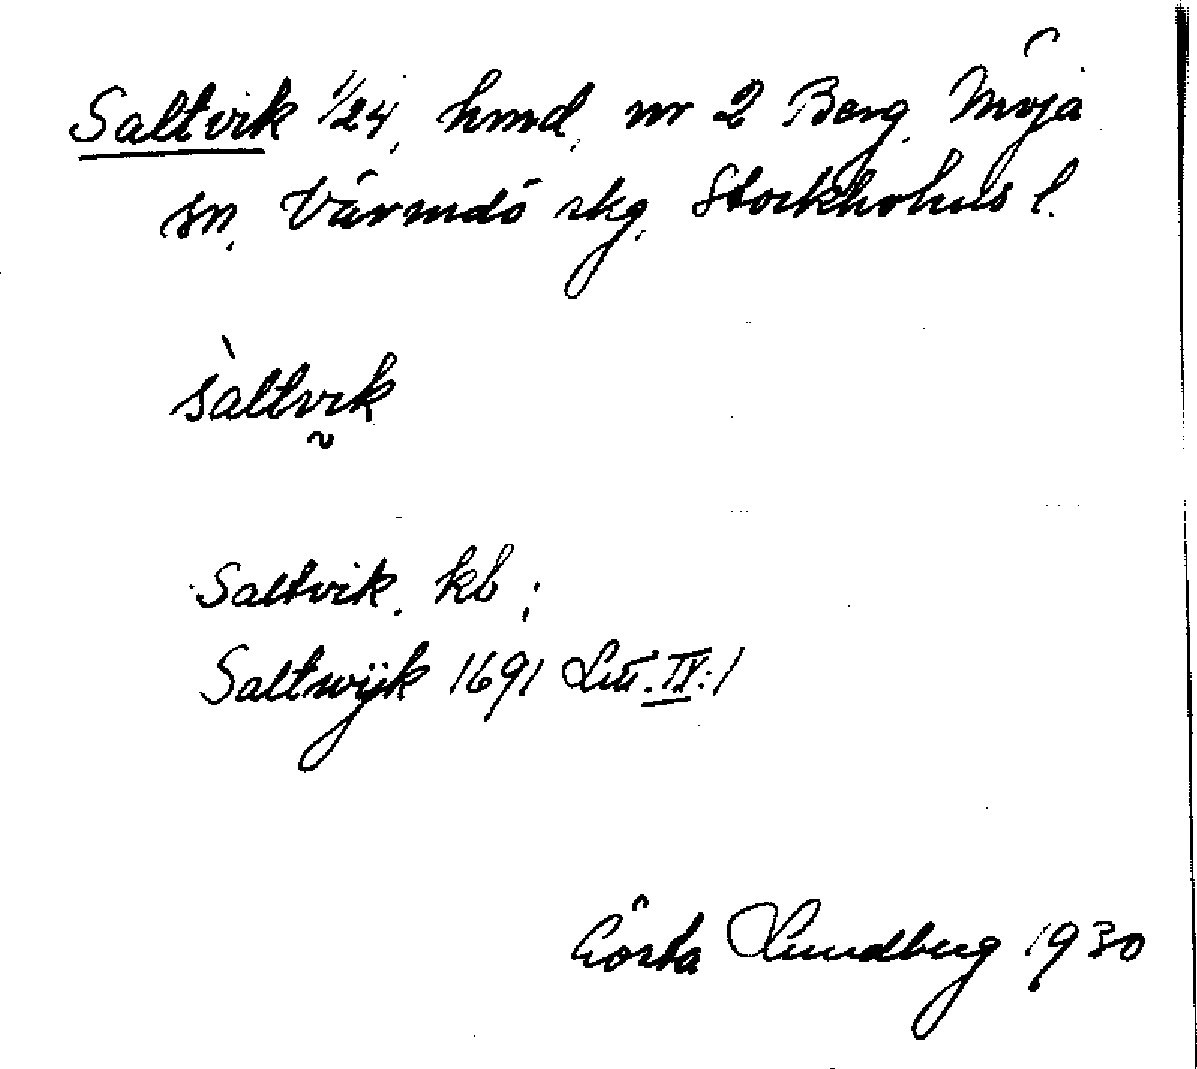 Saltvik 1/24, hmd, nr 2 Berg, Möja
sn, Värmdö skg, Stockholms l.
sàltvik
Saltvik. kb;
Saltwijk 1691 Litt. IV:1
Gösta Lundberg 1930